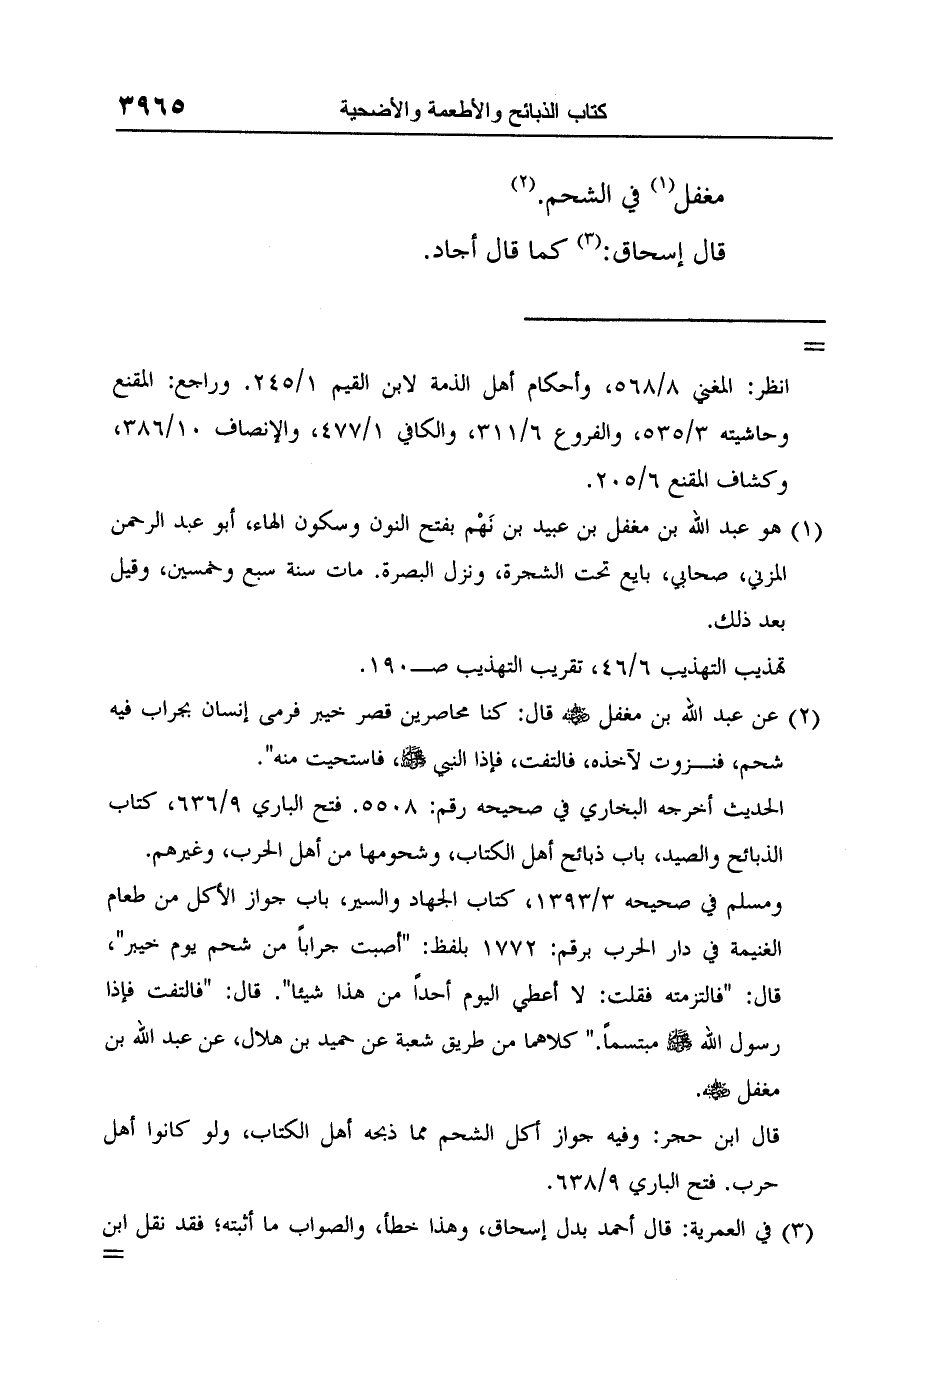 كتاب الذبائح والأطعمة والأضحية ٣٩٦٥
مغفل(١) في الشحم.(٢)
قال إسحاق:(٣) كما قال أجاد.
=
انظر: المغني ٥٦٨/٨، وأحكام أهل الذمة لابن القيم ٢٤٥/١. وراجع: المقنع
وحاشيته ٥٣٥/٣، والفروع ٣١١/٦، والكافي ٤٧٧/١، والإنصاف ٣٨٦/١٠،
وكشاف المقنع ٢٠٥/٦.
(١) هو عبد الله بن مغفل بن عبيد بن نَهْم بفتح النون وسكون الهاء، أبو عبد الرحمن
المزني، صحابي، بايع تحت الشجرة، ونزل البصرة. مات سنة سبع وخمسين، وقيل
بعد ذلك.
تهذيب التهذيب ٤٦/٦، تقريب التهذيب صـ١٩٠.
(٢) عن عبد الله بن مغفل رضي الله عنه قال: كنا محاصرين قصر خيبر فرمى إنسان بجراب فيه
شحم، فنـزوت لآخذه، فالتفت، فإذا النبي ﷺ، فاستحيت منه".
الحديث أخرجه البخاري في صحيحه رقم: ٥٥٠٨. فتح الباري ٦٣٦/٩، كتاب
الذبائح والصيد، باب ذبائح أهل الكتاب، وشحومها من أهل الحرب، وغيرهم.
ومسلم في صحيحه ١٣٩٣/٣، كتاب الجهاد والسير، باب جواز الأكل من طعام
الغنيمة في دار الحرب برقم: ١٧٧٢ بلفظ: "أصبت جراباً من شحم يوم خيبر"،
قال: "فالتزمته فقلت: لا أعطي اليوم أحداً من هذا شيئا". قال: "فالتفت فإذا
رسول الله ﷺ مبتسماً." كلاهما من طريق شعبة عن حميد بن هلال، عن عبد الله بن
مغفل رضي الله عنه.
قال ابن حجر: وفيه جواز أكل الشحم مما ذبحه أهل الكتاب، ولو كانوا أهل
حرب. فتح الباري ٦٣٨/٩.
(٣) في العمرية: قال أحمد بدل إسحاق، وهذا خطأ، والصواب ما أثبته؛ فقد نقل ابن
=